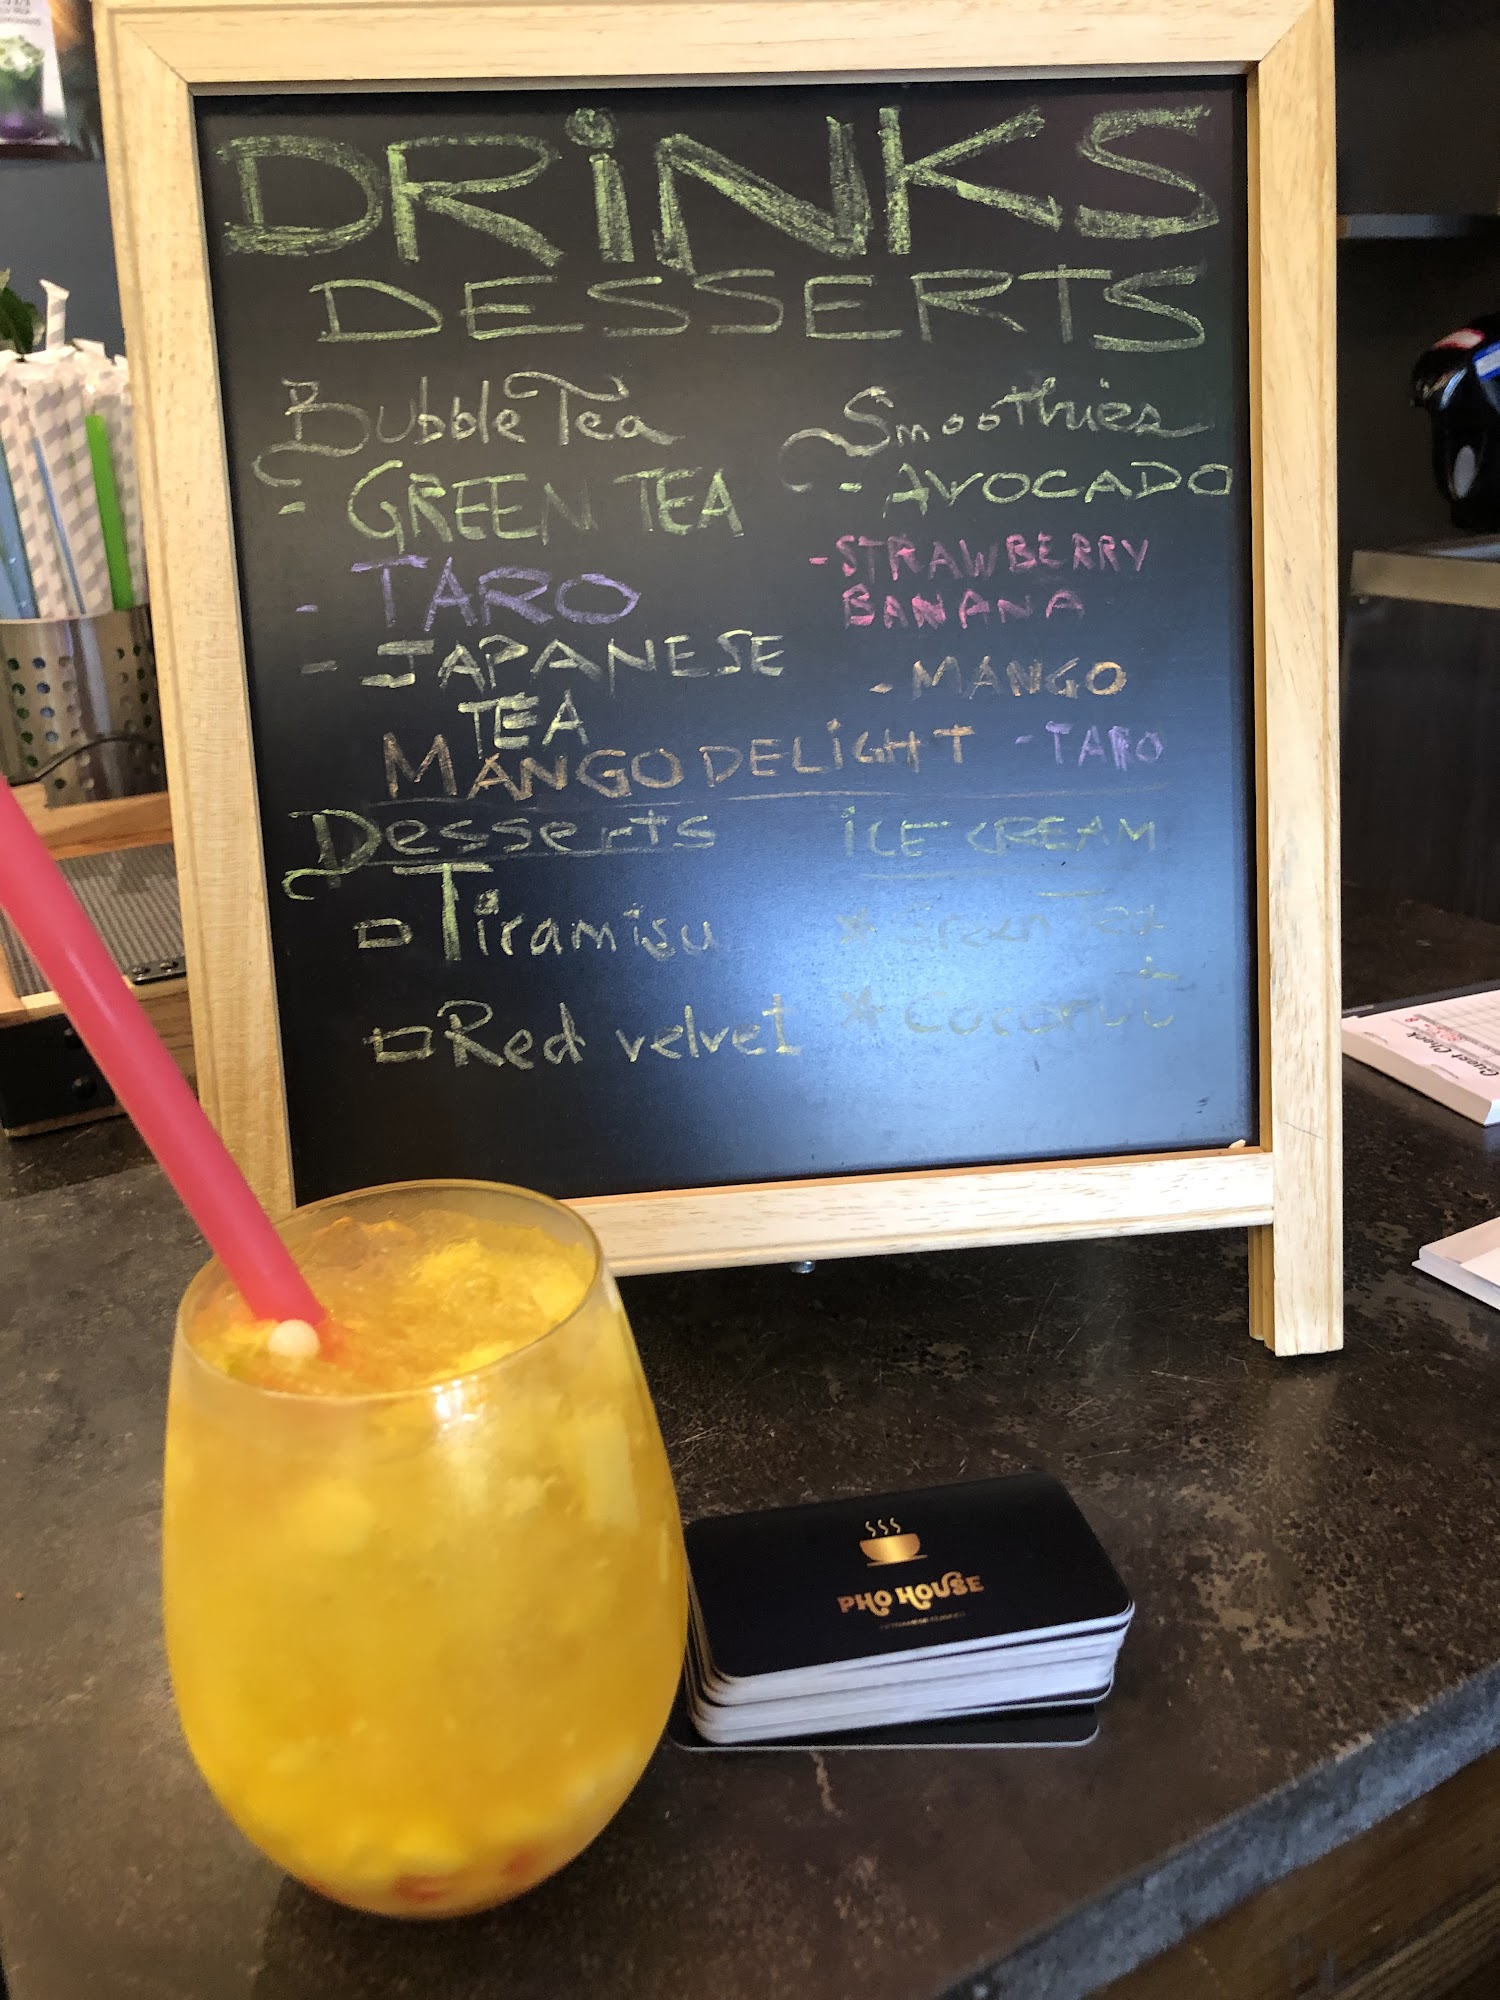 DRiNKS
DESSERTS
Bubble Tea
- GREEN TEA
- TARO
- JAPANESE
TEA
MANGO DELiGHT
Smoothies
- AVOCADO
- STRAWBERRY
BANANA
- MANGO
- TARO
Desserts
Tiramisu
Red velvet
iCE CREAM
* Green Tea
PHO HOUSE
Guest Check